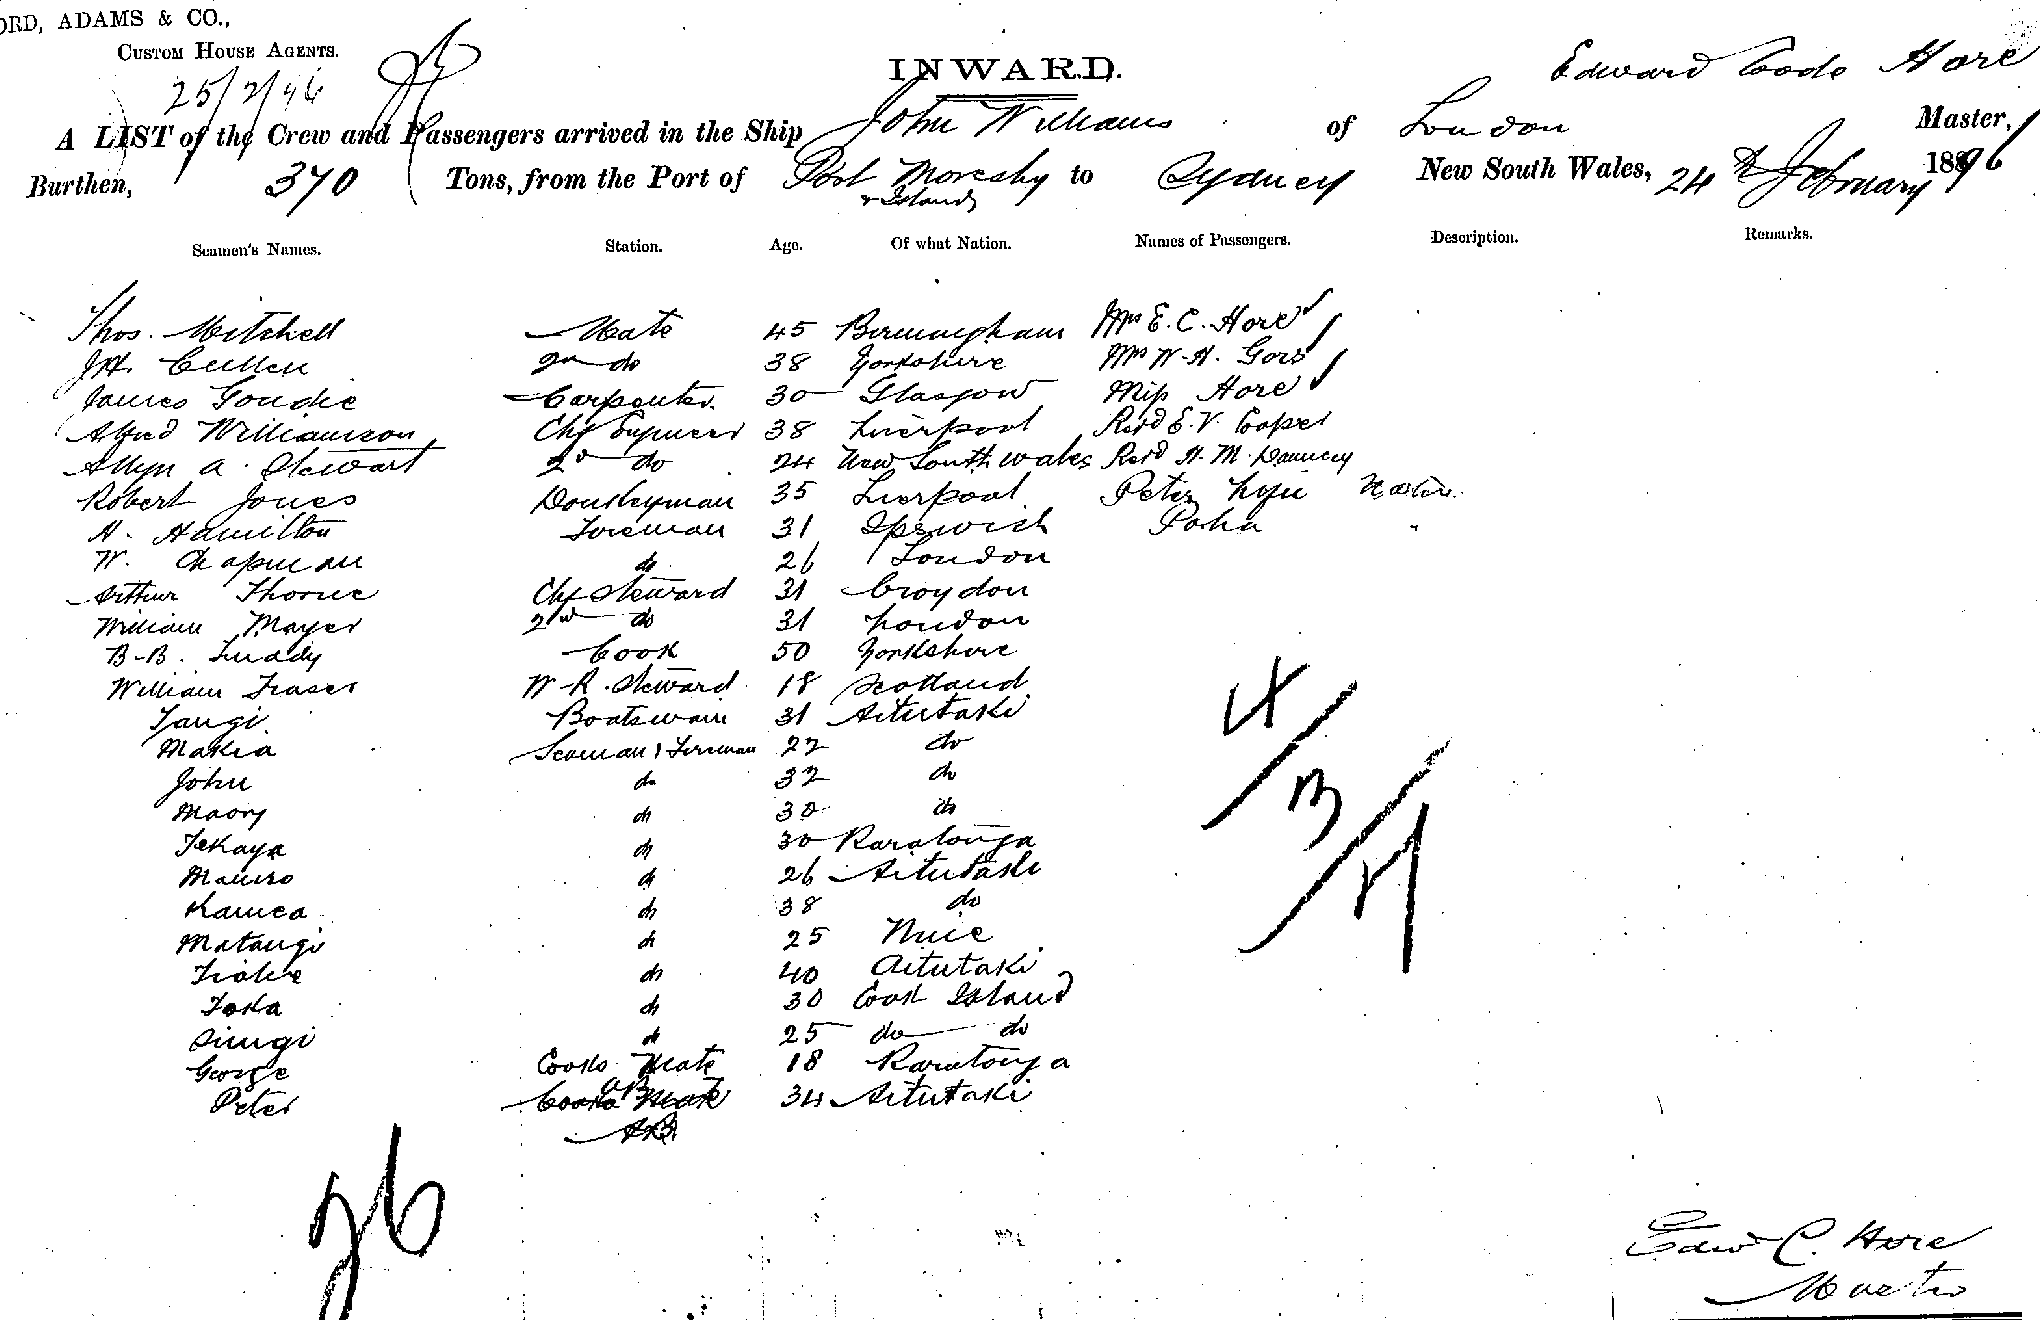 ORD, ADAMS & CO.,
CUSTOM HOUSE AGENTS.
25/2/96
INWARD.
Edward Coode Hore
A LIST of the Crew and Passengers arrived in the Ship John Williams of London Master,
Burthen, 370 Tons, from the Port of Port Moresby & Islands to Sydney New South Wales, 24th February 1896
Seamen's Names. Station. Age. Of what Nation. Names of Passengers. Description. Remarks.
Thos. Mitchell Mate 45 Birmingham Mrs E. C. Hore
J.H. Cullen 2nd do 38 Yorkshire Mrs W. H. Gors
James Goudie Carpenter 30 Glasgow Miss Hore
Alfred Williamson Chf Engineer 38 Liverpool Revd E. V. Cooper
Allyn A. Stewart 2nd do 24 New South Wales Revd H. M. Dauncey
Robert Jones Donkeyman 35 Liverpool Peter Native
H. Hamilton Fireman 31 Ipswich Poha "
W. Chapman do 26 London
Arthur Thorne Chf Steward 31 Croydon
William Mayer 2nd do 31 London
B. B. Luddy Cook 50 Yorkshire
William Fraser W. R. Steward 18 Scotland
Tangi Boatswain 31 Aitutaki
Makea Seaman & Fireman 22 do
John do 32 do
Maory do 30 do
Tekaya do 30 Raratonga
Mauro do 26 Aitutaki
Kamea do 38 do
Matangi do 25 Niue
do 40 Aitutaki
Toka do 30 Cook Island
Siungi do 25 do do
George Cooks Mate 18 Raratonga
Peter Cooks Mate AB 34 Aitutaki
AB
4/3/7
26
Edwd C. Hore
Master